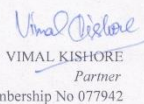 Vimal Kishore
VIMAL KISHORE
Partner
mbership No 077942